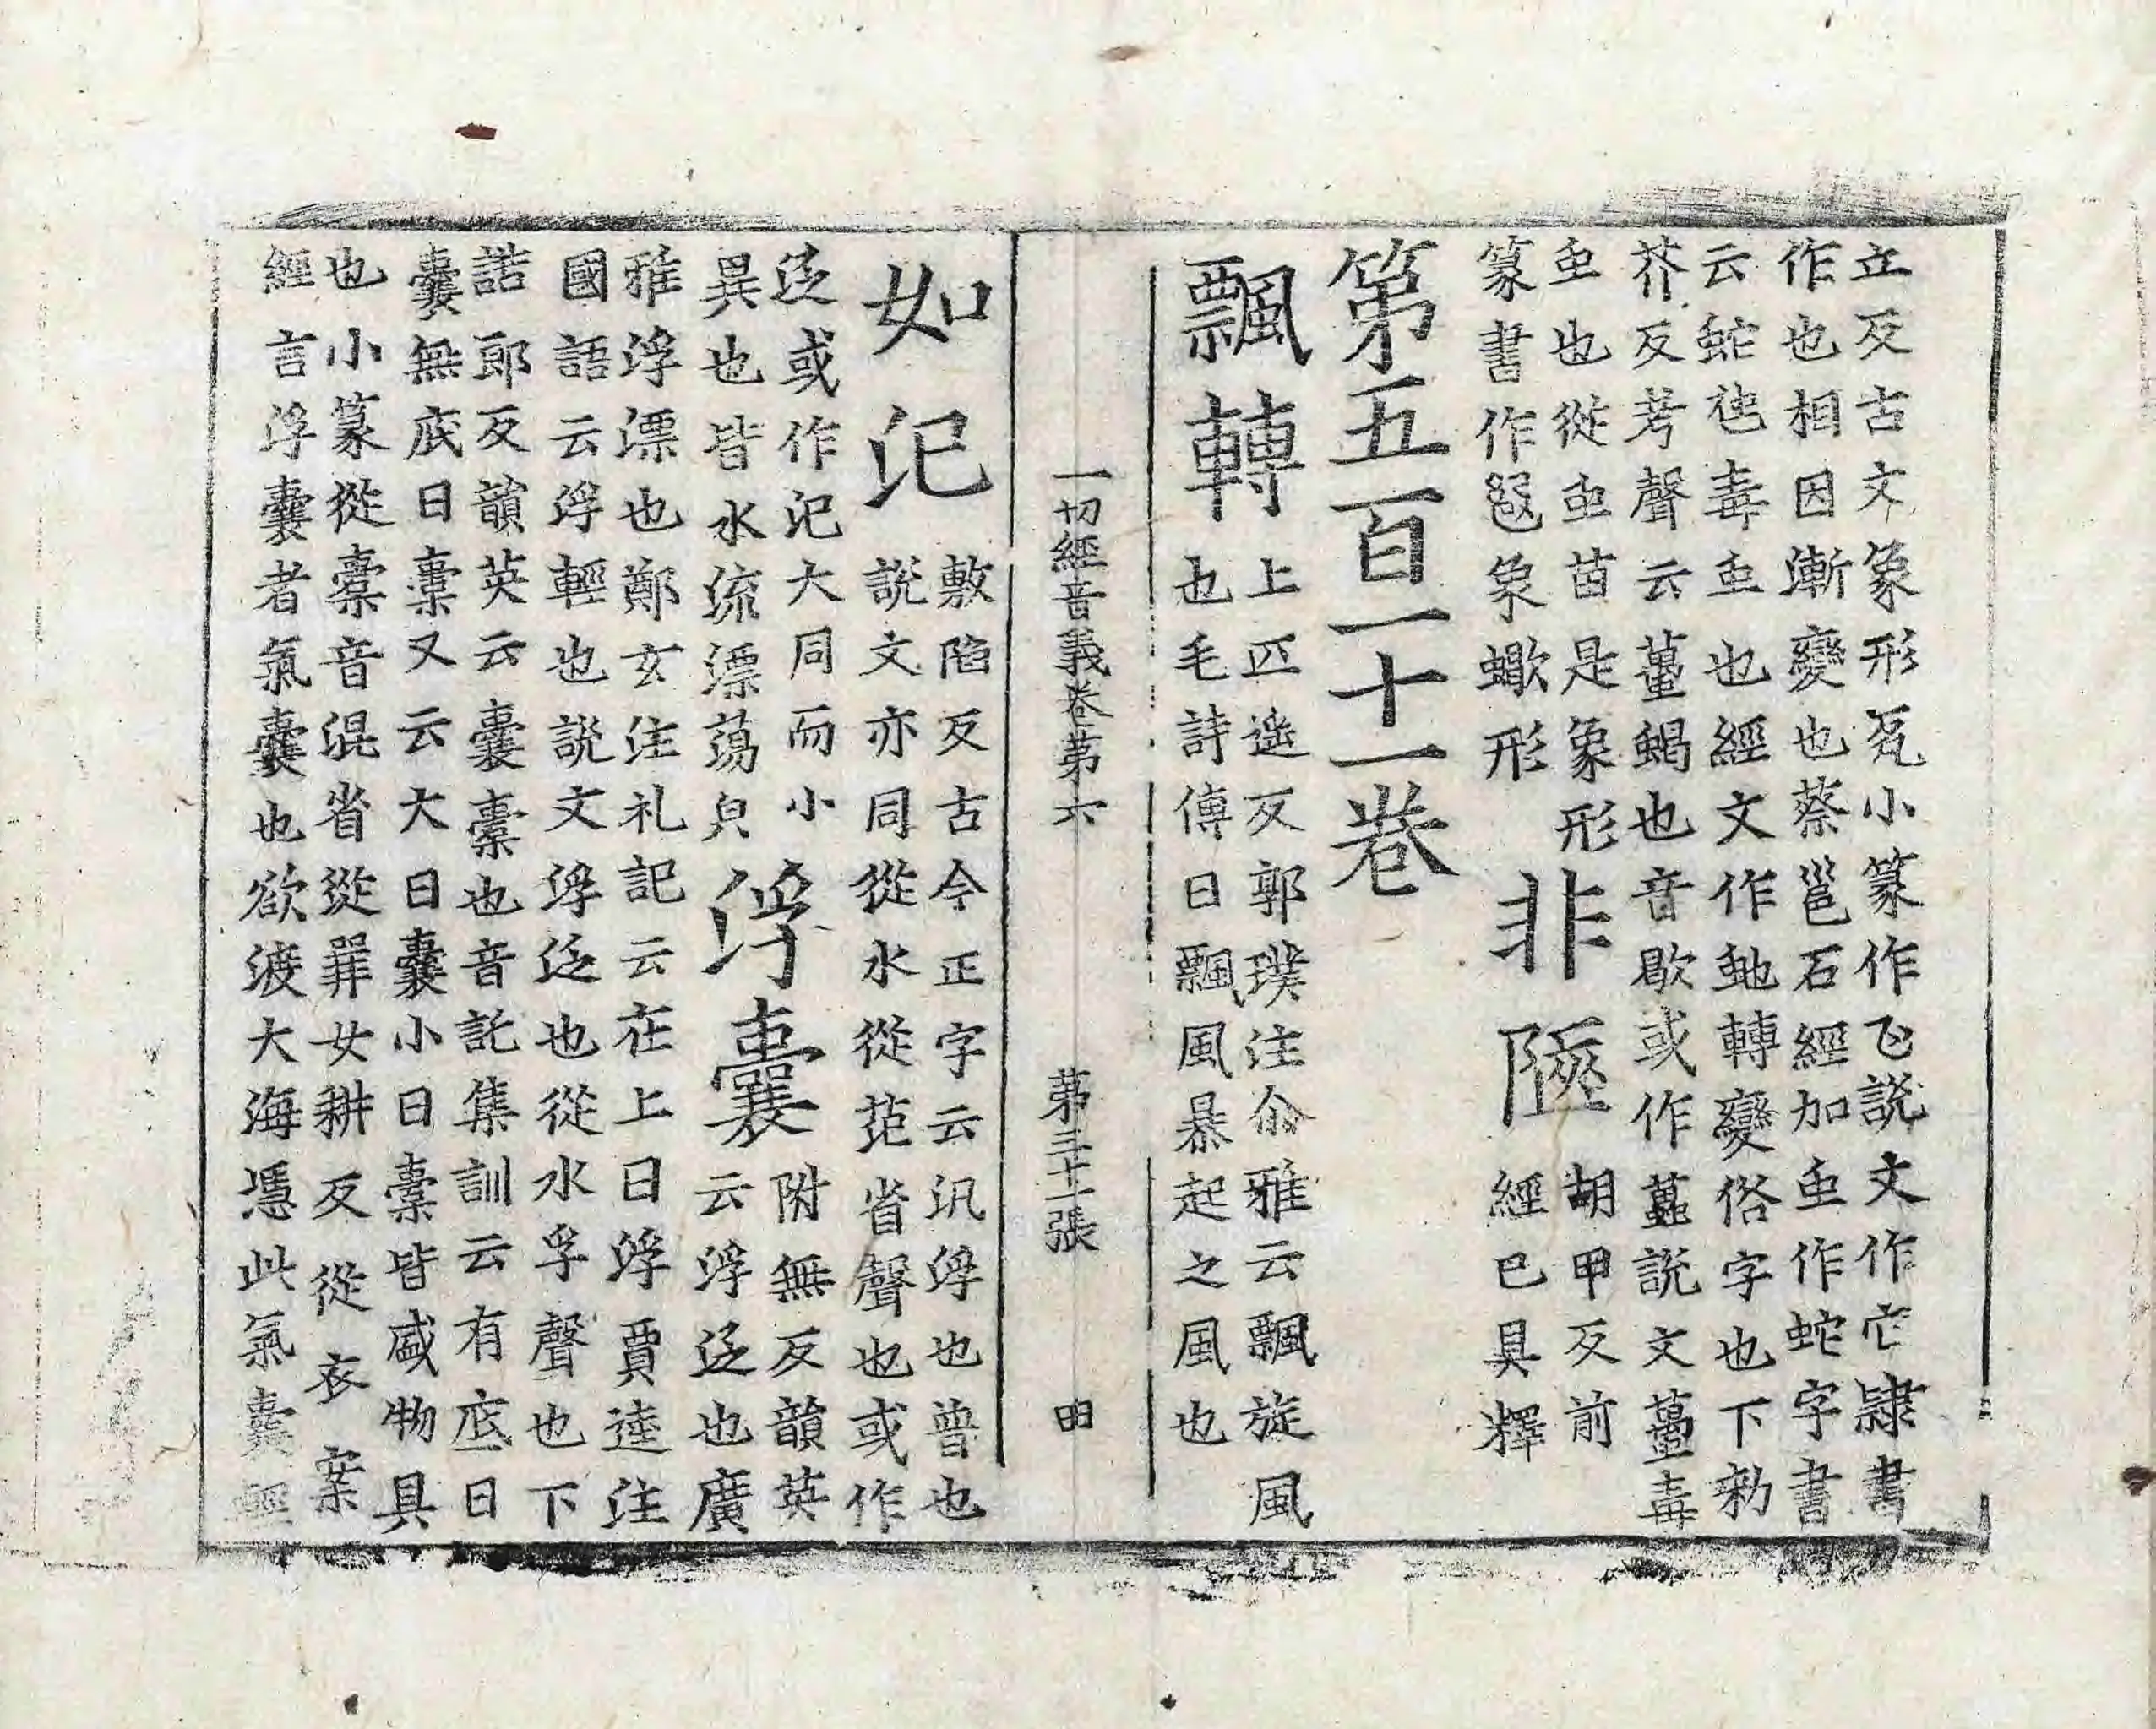 立反古文象形𠃉小篆作飞説文作它隷書
作也相因漸變也蔡邕石經加䖝作蛇字書
云蛇虵毒䖝也經文作虵轉變俗字也下勑
芥反考聲云蠆蝎也音歇或作䘍説文蠆毒
䖝也從䖝苗是象形
篆書作𧍣象蠍形
非陿
胡甲反前
經已具釋
第五百一十一卷
飄轉
上匹遥反郭璞注尒雅云飄旋風
也毛詩傳曰飄風暴起之風也
一切經音義卷第六　第三十一張　明
如氾
敷陷反古今正字云汎浮也普也
説文亦同從水從范省聲也或作
泛或作氾大同而小
異也皆水流漂蕩皃
浮囊
附無反韻英
云浮泛也廣
雅浮漂也鄭玄注礼記云在上曰浮賈逵注
國語云浮輕也説文浮泛也從水孚聲也下
諾郎反韻英云囊橐也音託集訓云有底曰
囊無底曰橐又云大曰囊小曰橐皆盛物具
也小篆從㯻音混省從𤕦女耕反從衣案
經言浮囊者氣囊也欲渡大海憑此氣囊輕